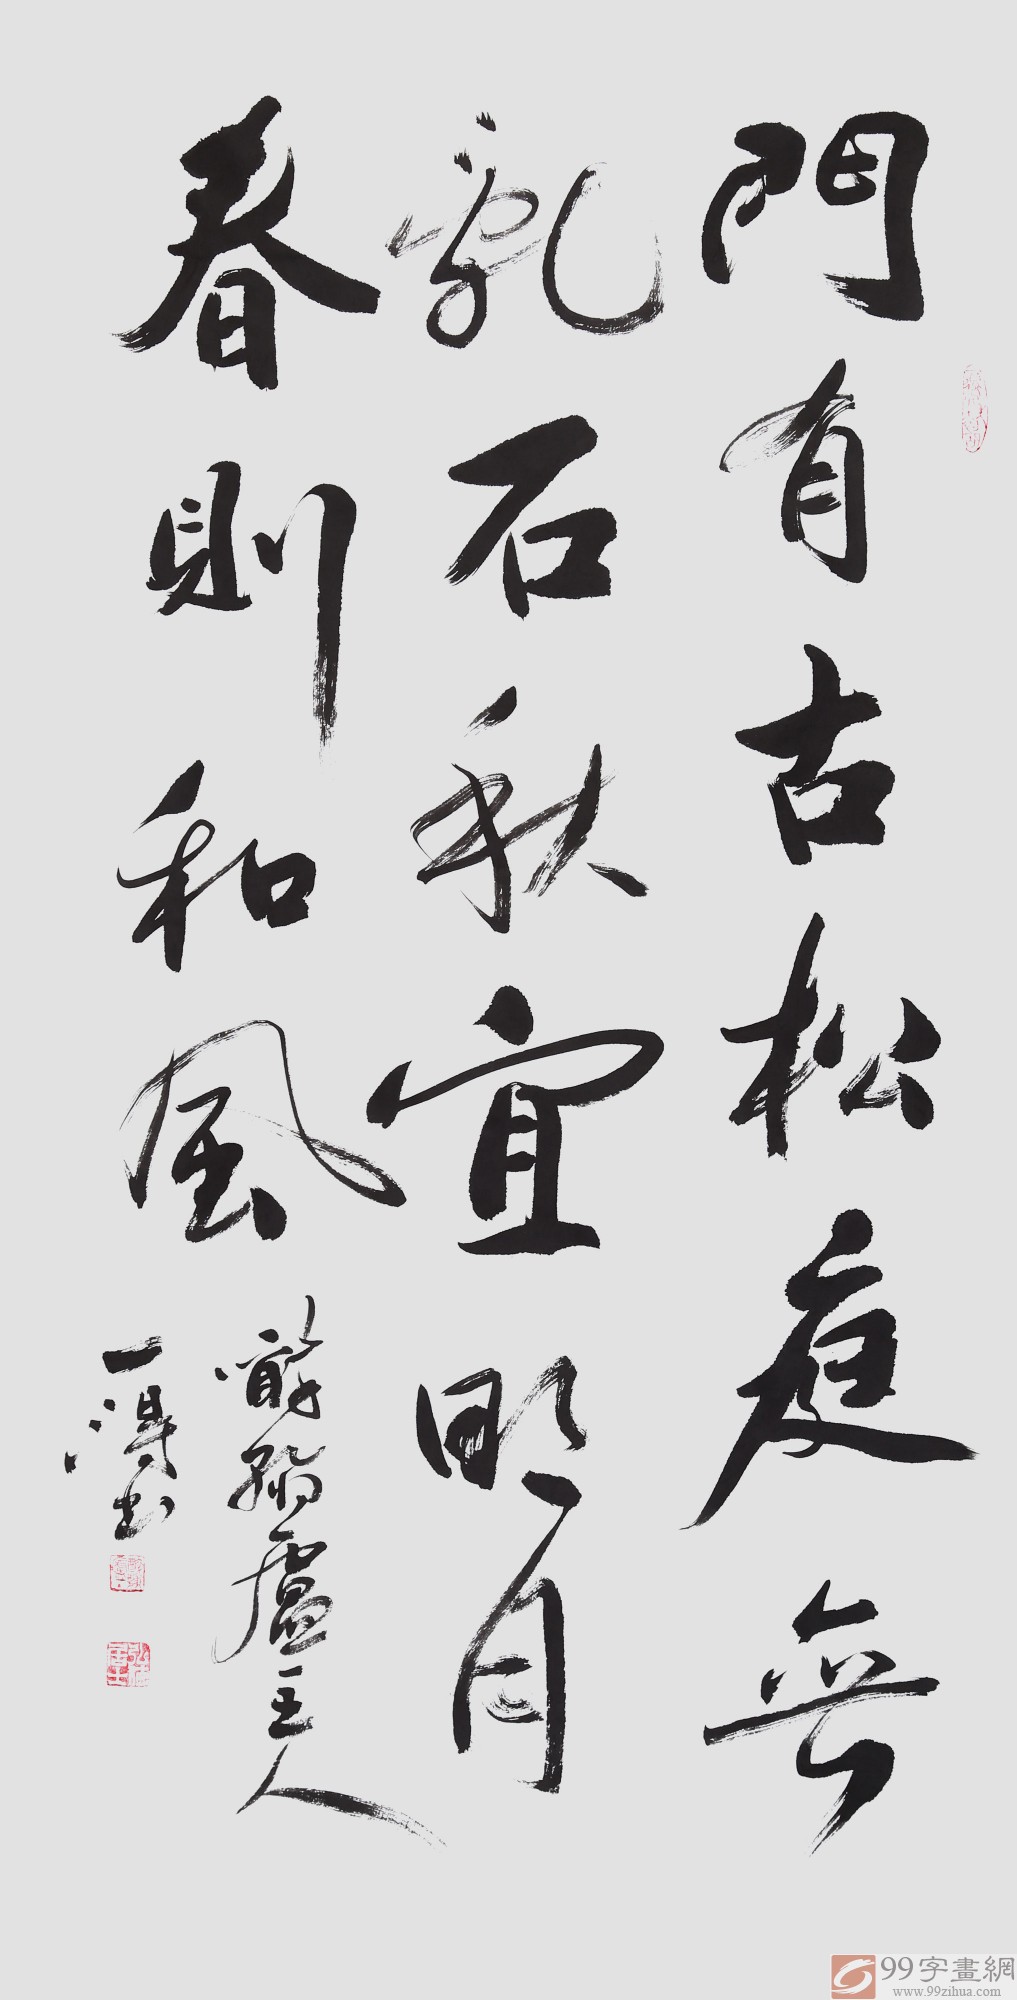 門有古松庭無
亂石秋宜明月
春則和風
盧主人
一得書
99字畫網
www.99zihua.com